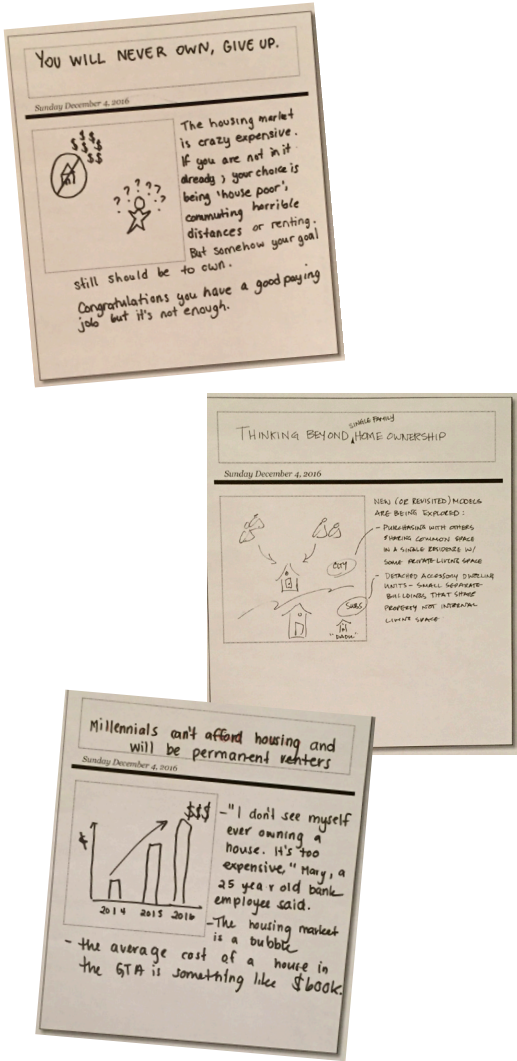 YOU WILL NEVER OWN, GIVE UP.
Sunday December 4, 2016
$ $
$ $ $
$ $ $
$$
? ? ? ? ? ?
The housing market
is crazy expensive.
If you are not in it
already, your choice is
being 'house poor',
commuting horrible
distances or renting.
But somehow your goal
still should be to own.
Congratulations you have a good paying
job but it's not enough.
SINGLE FAMILY
THINKING BEYOND HOME OWNERSHIP
Sunday December 4, 2016
NEW (OR REVISITED) MODELS
ARE BEING EXPLORED:
- PURCHASING WITH OTHERS
SHARING COMMON SPACE
IN A SINGLE RESIDENCE W/
SOME PRIVATE LIVING SPACE
CITY
- DETACHED ACCESSORY DWELLING
UNITS - SMALL SEPARATE
BUILDINGS THAT SHARE
PROPERTY NOT INTERNAL
LIVING SPACE
SUBS
"DADU"
Millennials can't afford housing and
will be permanent renters
Sunday December 4, 2016
$$$
2014 2015 2016
- "I don't see myself
ever owning a
house. It's too
expensive," Mary, a
25 year old bank
employee said.
- The housing market
is a bubble
- the average cost of a house in
the GTA is something like $600k.